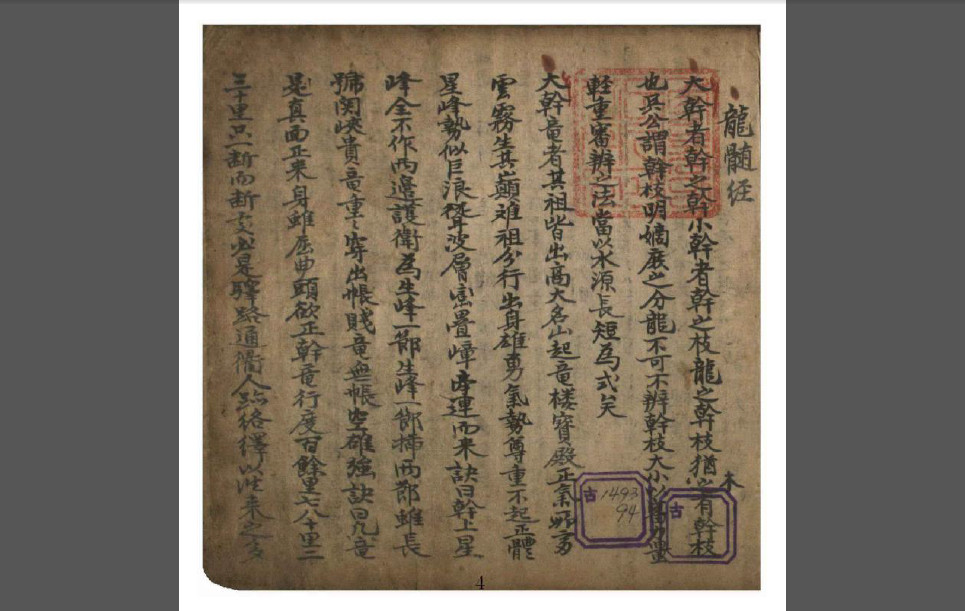 龍髄経
大幹者幹之幹小幹者幹之枝龍之幹枝猶木之有幹枝
也吳公謂幹枝明嫡庶之分龍不可不辨幹枝大小
軽重審辨之法當以水源長短為式矣
大幹竜者其祖皆出高大名山起竜楼寶殿正氣
雲霧生其巔離祖分行出身雄勇氣勢尊重不起正體
星峰勢似巨浪聳波層巒疊嶂牽連而来訣曰幹上星
峰全不作両邉護衛為生峰一節生峰一節挿両節雖長
號関峽貴竜重〻穿出帳賤竜無帳空雄強訣曰九竜
是真面正来身雖屈曲頭欲正幹竜行度百餘里七八十里二
三十里只一断而断處必是驛路通衢人跡絡繹以此来之
古
1493
94
古
4